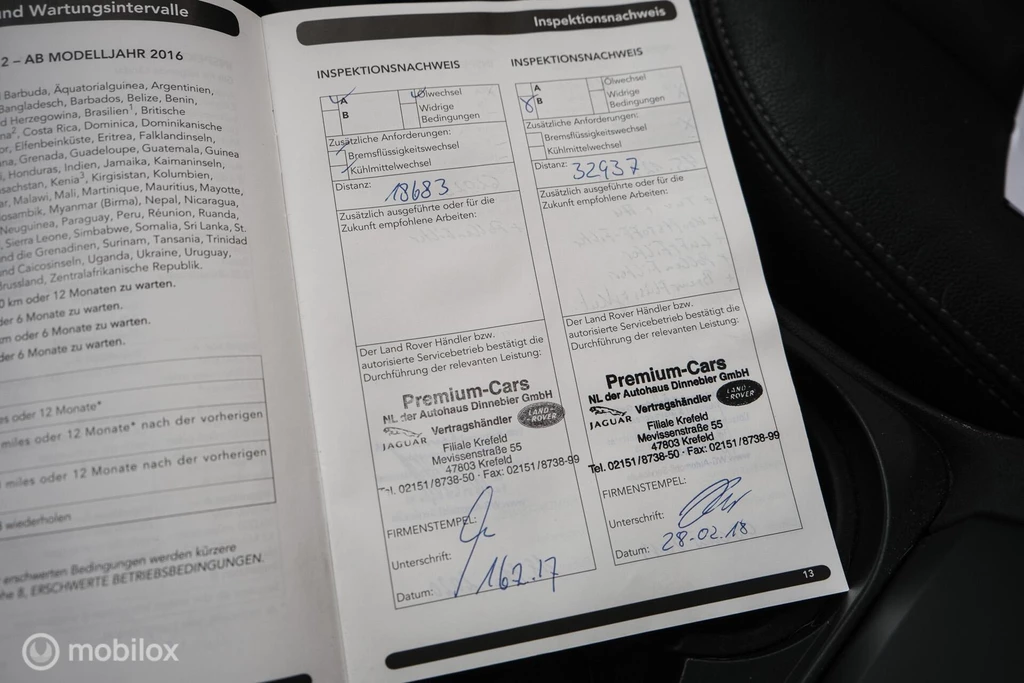 nd Wartungsintervalle
2 – AB MODELLJAHR 2016
Barbuda, Äquatorialguinea, Argentinien,
Bangladesch, Barbados, Belize, Benin,
d Herzegowina, Brasilien¹, Britische
na², Costa Rica, Dominica, Dominikanische
or, Elfenbeinküste, Eritrea, Falklandinseln,
na, Grenada, Guadeloupe, Guatemala, Guinea
i, Honduras, Indien, Jamaika, Kaimaninseln,
sachstan, Kenia³, Kirgisistan, Kolumbien,
ar, Malawi, Mali, Martinique, Mauritius, Mayotte,
osambik, Myanmar (Birma), Nepal, Nicaragua,
Neuguinea, Paraguay, Peru, Réunion, Ruanda,
Sierra Leone, Simbabwe, Somalia, Sri Lanka, St.
und die Grenadinen, Surinam, Tansania, Trinidad
und Caicosinseln, Uganda, Ukraine, Uruguay,
russland, Zentralafrikanische Republik.
0 km oder 12 Monaten zu warten.
der 6 Monate zu warten.
m oder 6 Monate zu warten.
der 6 Monate zu warten.
es oder 12 Monate*
miles oder 12 Monate* nach der vorherigen
miles oder 12 Monate nach der vorherigen
wiederholen
erschwerten Bedingungen werden kürzere
he 8, ERSCHWERTE BETRIEBSBEDINGUNGEN.
Inspektionsnachweis
INSPEKTIONSNACHWEIS
A
B
Ölwechsel
Widrige
Bedingungen
Zusätzliche Anforderungen:
Bremsflüssigkeitswechsel
Kühlmittelwechsel
Distanz: 18683
Zusätzlich ausgeführte oder für die
Zukunft empfohlene Arbeiten:
Der Land Rover Händler bzw.
autorisierte Servicebetrieb bestätigt die
Durchführung der relevanten Leistung:
Premium-Cars
NL der Autohaus Dinnebier GmbH
JAGUAR
Vertragshändler
LAND ROVER
Filiale Krefeld
Mevissenstraße 55
47803 Krefeld
Tel. 02151/8738-50 · Fax: 02151/8738-99
FIRMENSTEMPEL:
Unterschrift:
Datum: 16.2.17
INSPEKTIONSNACHWEIS
A
B
Ölwechsel
Widrige
Bedingungen
Zusätzliche Anforderungen:
Bremsflüssigkeitswechsel
Kühlmittelwechsel
Distanz: 32937
Zusätzlich ausgeführte oder für die
Zukunft empfohlene Arbeiten:
Der Land Rover Händler bzw.
autorisierte Servicebetrieb bestätigt die
Durchführung der relevanten Leistung:
Premium-Cars
NL der Autohaus Dinnebier GmbH
JAGUAR
Vertragshändler
LAND ROVER
Filiale Krefeld
Mevissenstraße 55
47803 Krefeld
Tel. 02151/8738-50 · Fax: 02151/8738-99
FIRMENSTEMPEL:
Unterschrift:
Datum: 28-02.18
13
mobilox